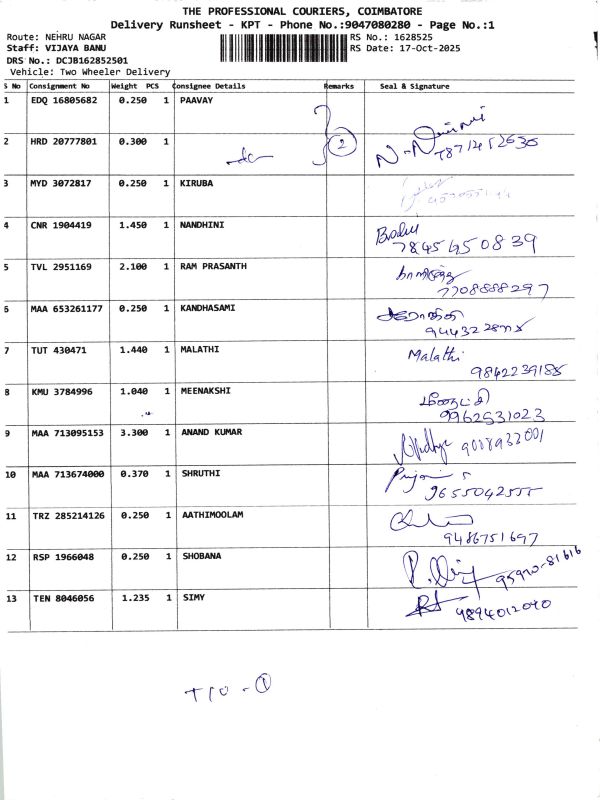 THE PROFESSIONAL COURIERS, COIMBATORE
Delivery Runsheet - KPT - Phone No.:9047080280 - Page No.:1
Route: NEHRU NAGAR RS No.: 1628525
Staff: VIJAYA BANU RS Date: 17-Oct-2025
DRS No.: DCJB162852501
Vehicle: Two Wheeler Delivery
S No Consignment No Weight PCS Consignee Details Remarks Seal & Signature
1 EDQ 16805682 0.250 1 PAAVAY
2 HRD 20777801 0.300 1 2 7871452630
3 MYD 3072817 0.250 1 KIRUBA
4 CNR 1904419 1.450 1 NANDHINI
7845450839
5 TVL 2951169 2.100 1 RAM PRASANTH
7708888297
6 MAA 653261177 0.250 1 KANDHASAMI
7 TUT 430471 1.440 1 MALATHI Malathi
9842239188
8 KMU 3784996 1.040 1 MEENAKSHI மீனாட்சி
9962531023
9 MAA 713095153 3.300 1 ANAND KUMAR
10 MAA 713674000 0.370 1 SHRUTHI
9655042555
11 TRZ 285214126 0.250 1 AATHIMOOLAM
9486751697
12 RSP 1966048 0.250 1 SHOBANA 95970-81616
13 TEN 8046056 1.235 1 SIMY 9894012040